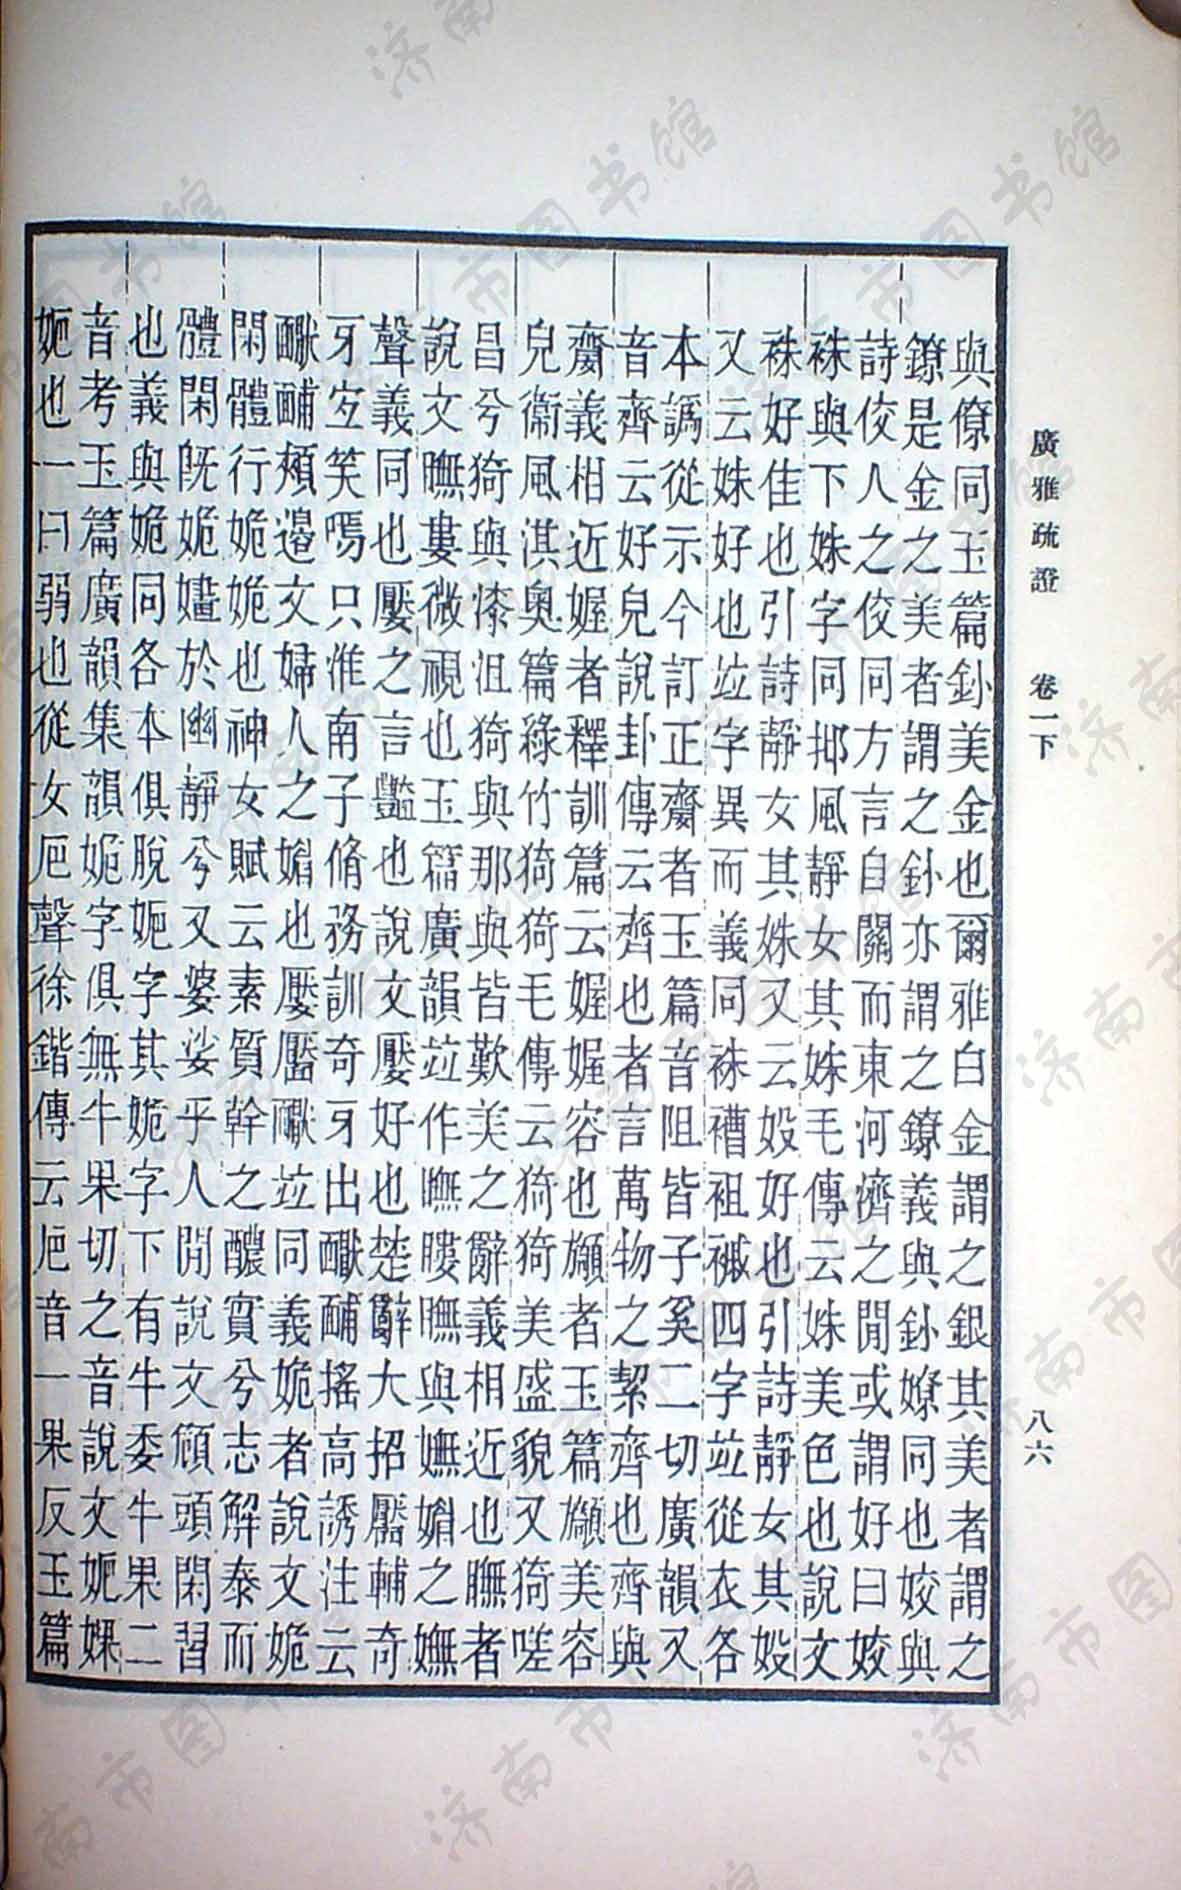 與僚同玉篇釥美金也爾雅白金謂之銀其美者謂之
鐐是金之美者謂之釥亦謂之鐐義與釥嫽同也姣與
詩佼人之佼同方言自關而東河濟之閒或謂好曰姣
袾與下姝字同邶風靜女其姝毛傳云姝美色也說文
袾好佳也引詩靜女其姝又云好也引詩靜女其
又云姝好也竝字異而義同袾褿袓四字竝從衣各
本譌從示今訂正齌者玉篇音阻皆子奚二切廣韻又
音齊云好皃說卦傳云齊也者言萬物之絜齊也齊與
齌義相近媉者釋訓篇云媉媉容也者玉篇美容
皃衞風淇奧篇綠竹猗猗毛傳云猗猗美盛貌又猗嗟
昌兮猗與漆沮猗與那與皆歎美之辭義相近也瞴者
說文瞴婁微視也玉篇廣韻竝作瞴䁖瞴與嫵媚之嫵
聲義同也嬮之言豔也說文嬮好也楚辭大招靨輔奇
牙宜笑嘕只淮南子脩務訓奇牙出搖高誘注云
頰邊文婦人之媚也嬮靨竝同義姽者說文姽
閑體行姽姽也神女賦云素質幹之醲實兮志解泰而
體閑既姽嫿於幽靜兮又婆娑乎人閒說文頠頭閑習
也義與姽同各本俱脫㛂字其姽字下有牛委牛果二
音考玉篇廣韻集韻姽字俱無牛果切之音說文㛂婐
㛂也一曰弱也從女厄聲徐鍇傳云厄音一果反玉篇
廣雅疏證 卷一下
八六
济南市图书馆